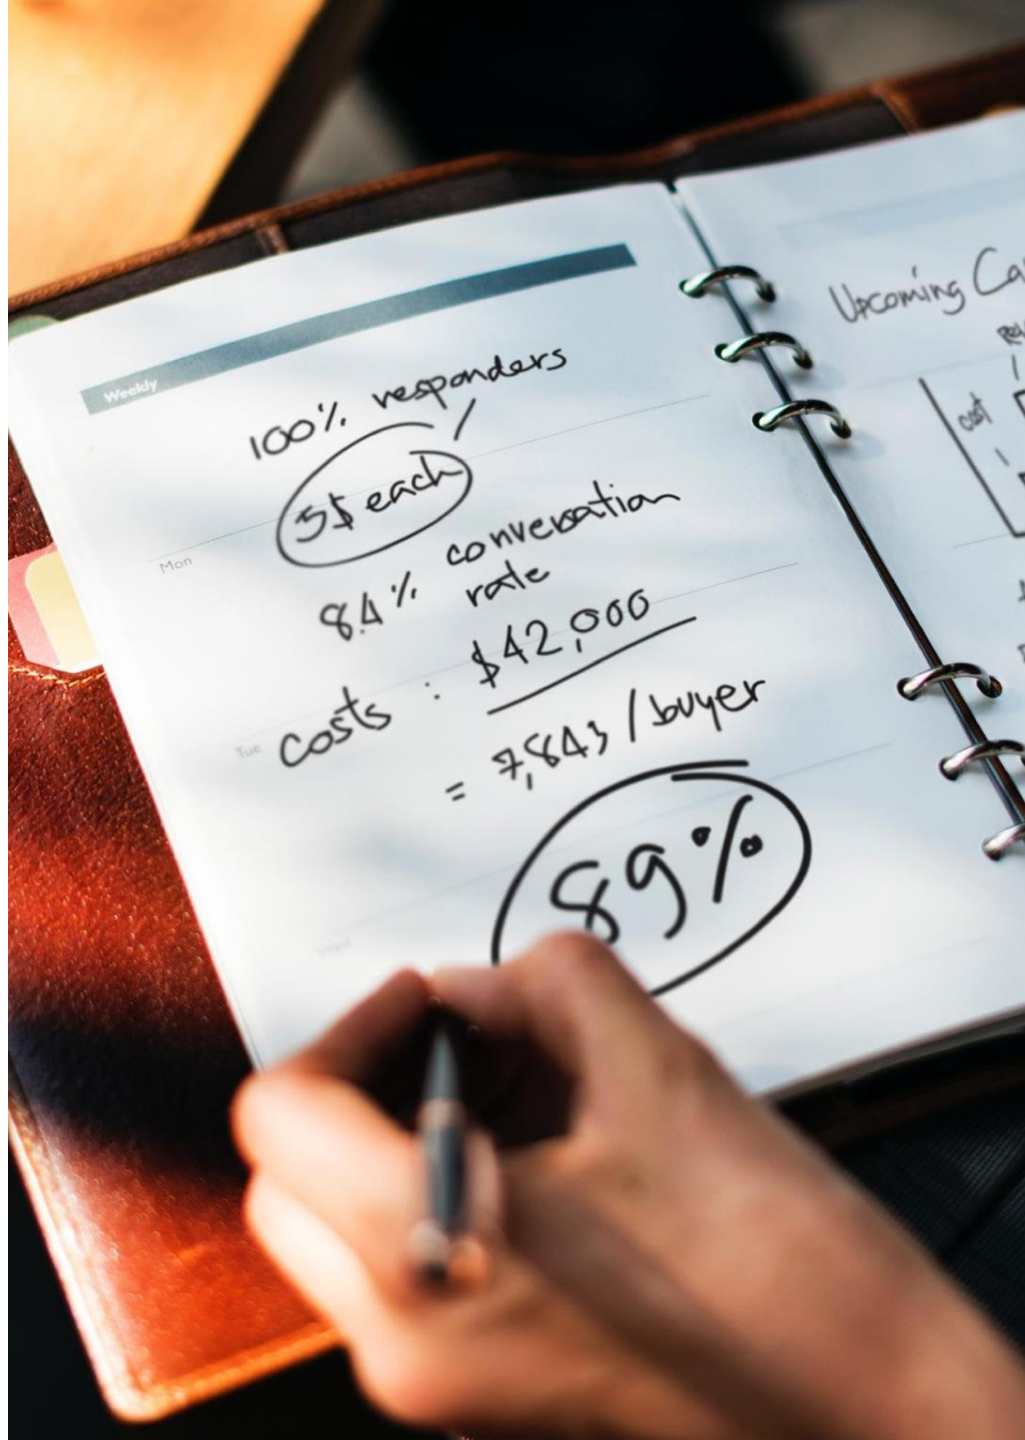 Weekly
100% responders
5$ each
Mon
8.4% conversation
rate
Tue
costs : $42,000
= 7,843 / buyer
89%
Wed
Upcoming
cost